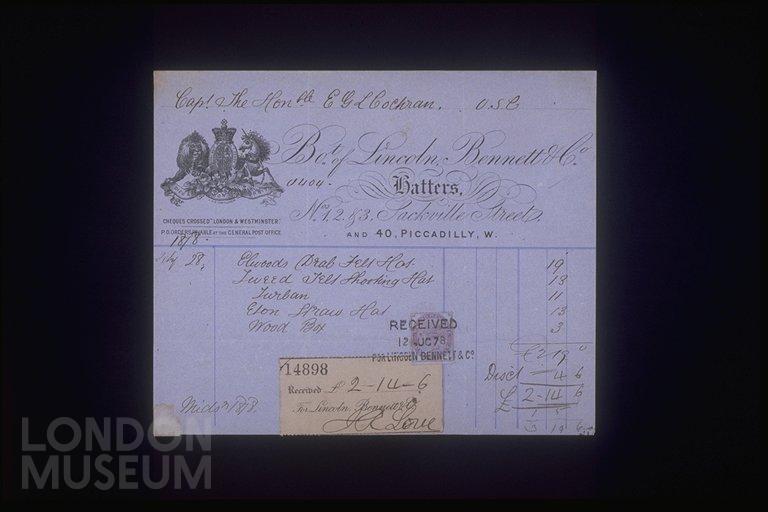 Capt The Honble E G L Cochran. U.S.C
Bot. of Lincoln, Bennett & Co
Hatters,
Nos 1, 2, & 3, Sackville Street,
AND 40, PICCADILLY, W.
CHEQUES CROSSED "LONDON & WESTMINSTER."
P.O. ORDERS PAYABLE AT THE GENERAL POST OFFICE
1878.
28, Elwoods Drab Felt Hat 19
Tweed Felt Shooting Hat 13
Turban 11
Eton Straw Hat 13
Wood Box 3
RECEIVED
12 AUG 78
FOR LINCOLN BENNETT & Co
£2 19 0
Disct 4 6
£ 2-14 6
14898
Received £ 2-14-6
For Lincoln, Bennett & Co
LONDON
MUSEUM